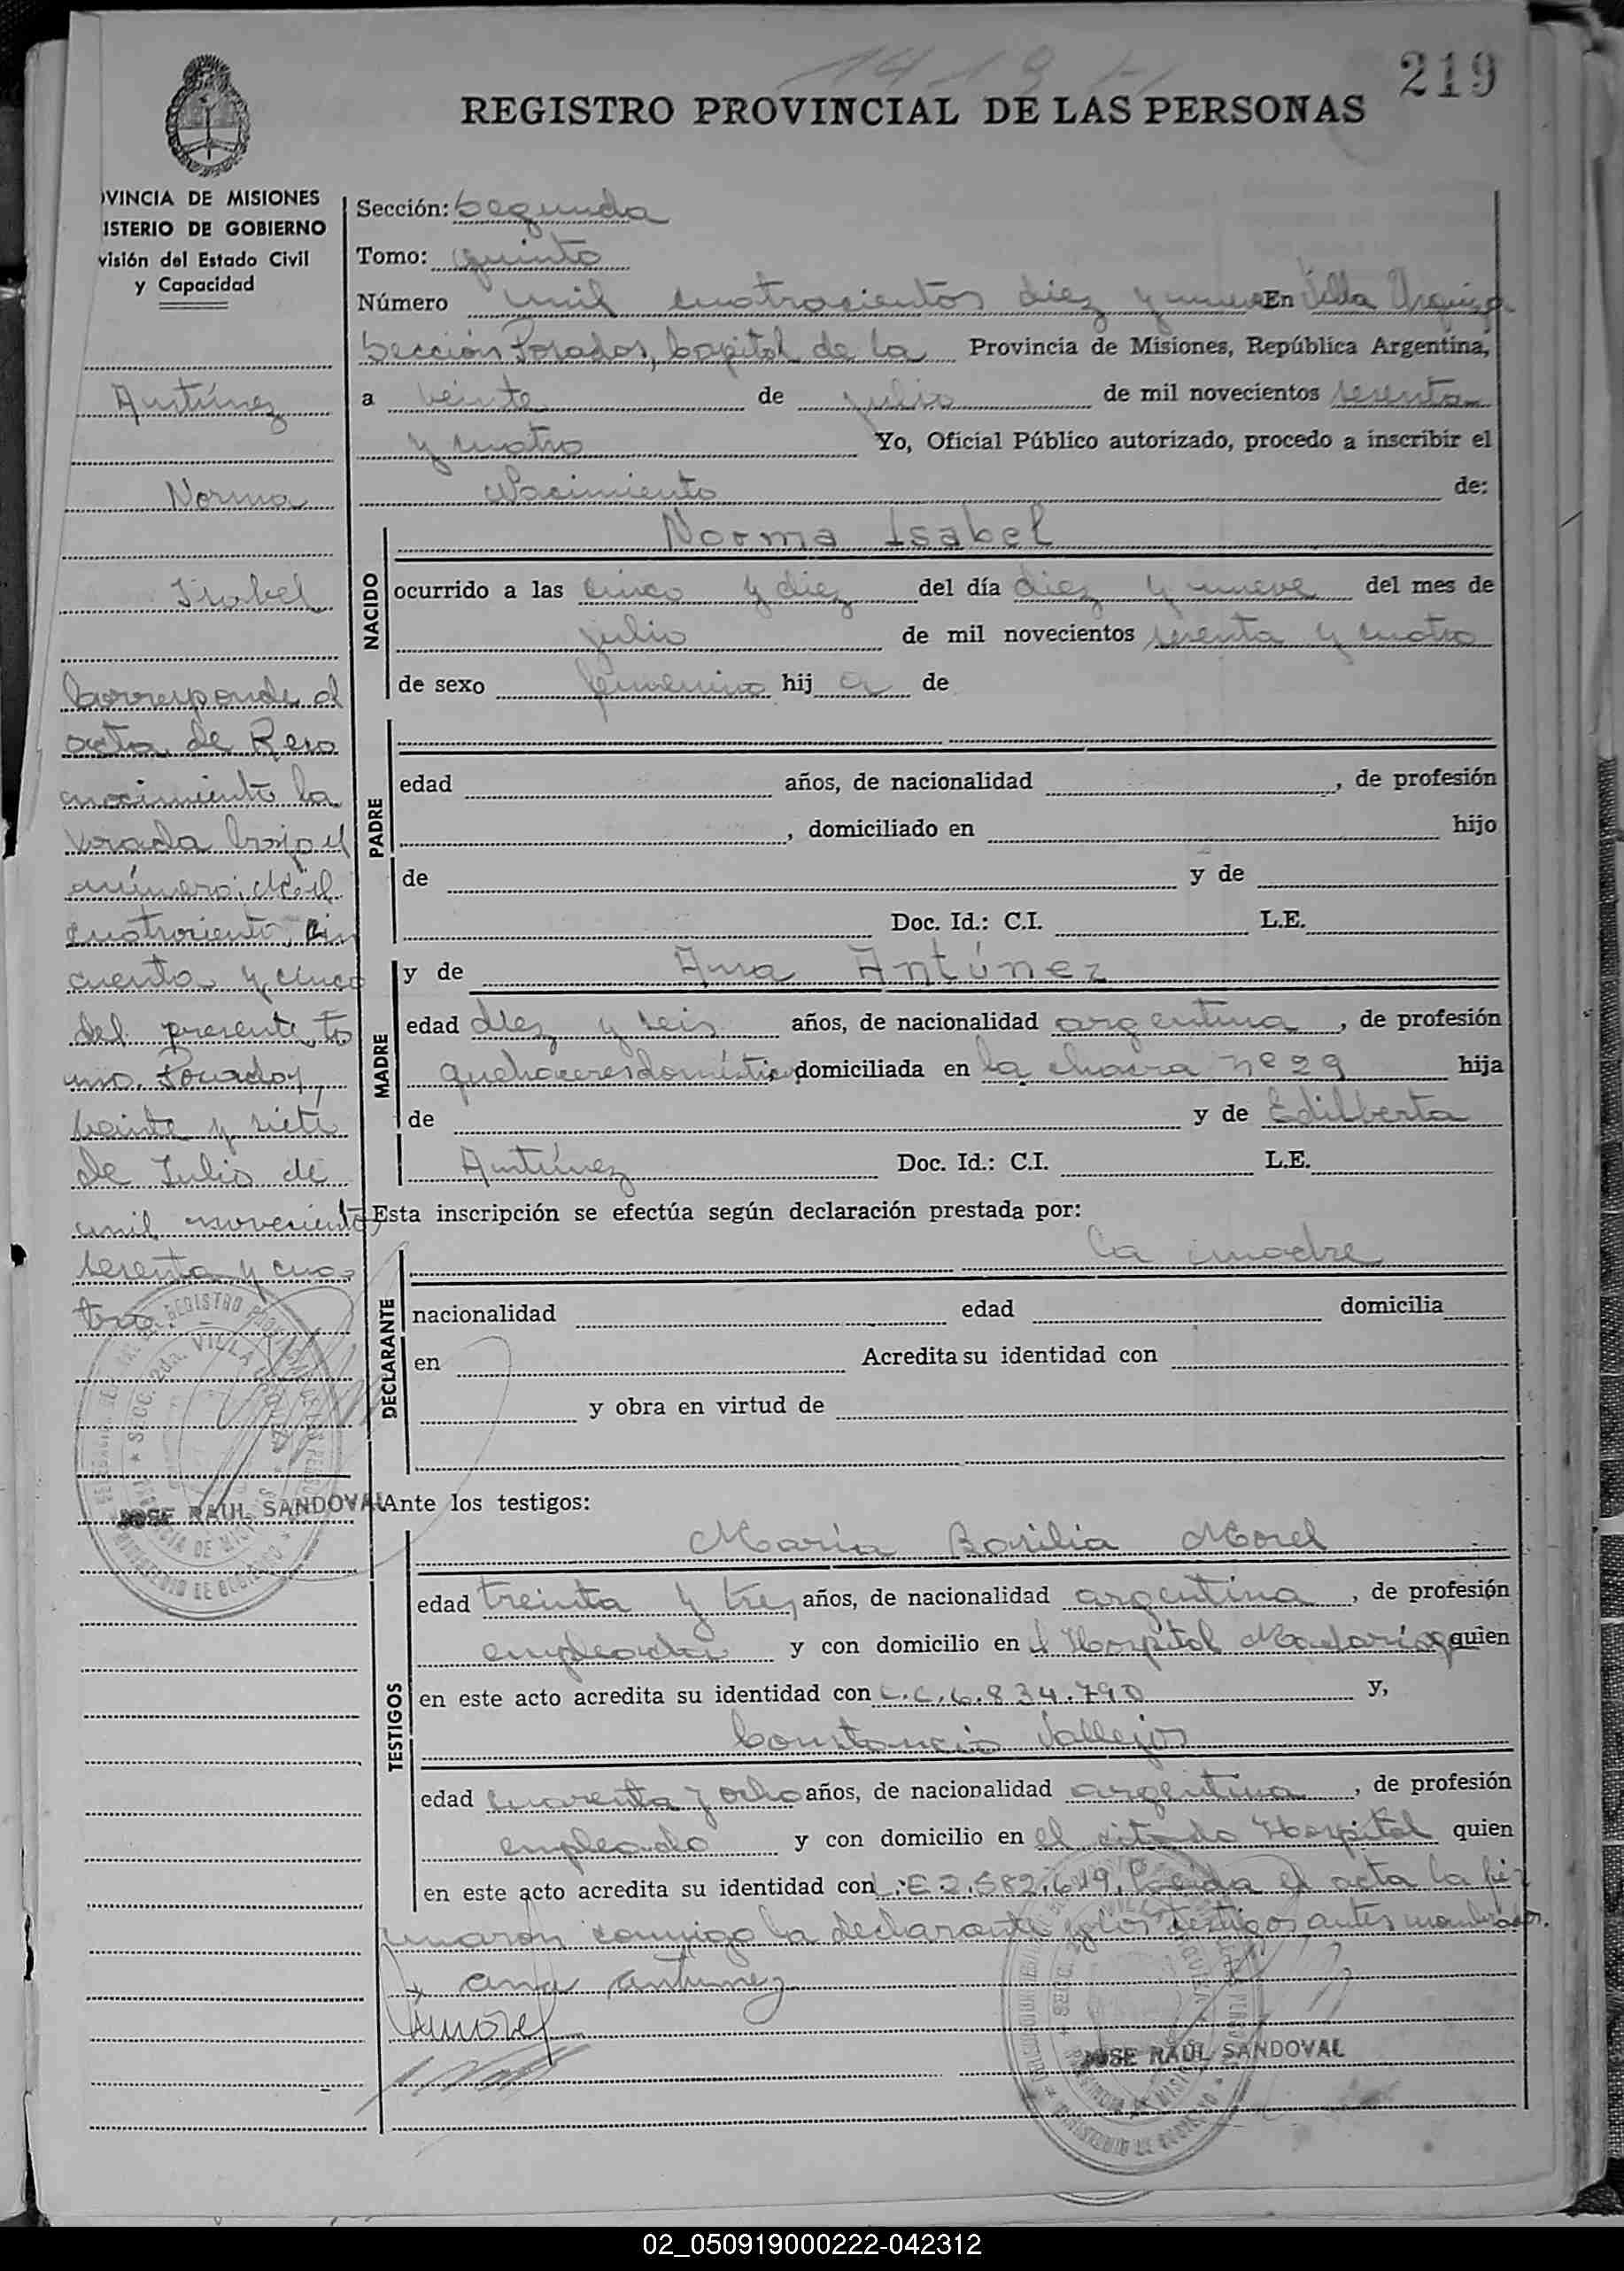 14191
219
REGISTRO PROVINCIAL DE LAS PERSONAS
OVINCIA DE MISIONES
ISTERIO DE GOBIERNO
visión del Estado Civil
y Capacidad
Antúnez
Norma
Isabel
Corresponde al
acta de Reco
nocimiento la
brada bajo el
número: Mil
cuatrociento, cin
cuenta y cinco
del presente to
mo. Posadas,
veinte y siete
de Julio de
mil novecientos
sesenta y cua-
tro.
JOSE RAUL SANDOVAL
Sección: Segunda
Tomo: quinto
Número mil cuatrocientos diez y nueve En Villa Urquiza
Sección Posadas, Capital de la Provincia de Misiones, República Argentina,
a veinte de julio de mil novecientos sesenta
y cuatro Yo, Oficial Público autorizado, procedo a inscribir el
Nacimiento de:
NACIDO
Norma Isabel
ocurrido a las cinco y diez del día diez y nueve del mes de
julio de mil novecientos sesenta y cuatro
de sexo femenino hij a de
PADRE
edad años, de nacionalidad , de profesión
, domiciliado en hijo
de y de
Doc. Id.: C.I. L.E.
MADRE
y de Ana Antúnez
edad diez y seis años, de nacionalidad argentina , de profesión
quehaceres domésticos domiciliada en la chacra nº 29 hija
de y de Edilberta
Antúnez Doc. Id.: C.I. L.E.
Esta inscripción se efectúa según declaración prestada por:
DECLARANTE
la madre
nacionalidad edad domicilia
en Acredita su identidad con
y obra en virtud de
Ante los testigos:
TESTIGOS
María Basilia Morel
edad treinta y tres años, de nacionalidad argentina , de profesión
empleada y con domicilio en el Hospital Madariaga quien
en este acto acredita su identidad con L.C.6.834.790 y,
Constancio Vallejos
edad cuarenta y ocho años, de nacionalidad argentina , de profesión
empleado y con domicilio en el citado Hospital quien
en este acto acredita su identidad con L.E 2.582.649. Leida el acta la fir
maron conmigo la declarante y los testigos antes nombrados.
ana antunez
JOSE RAUL SANDOVAL
02_050919000222-042312